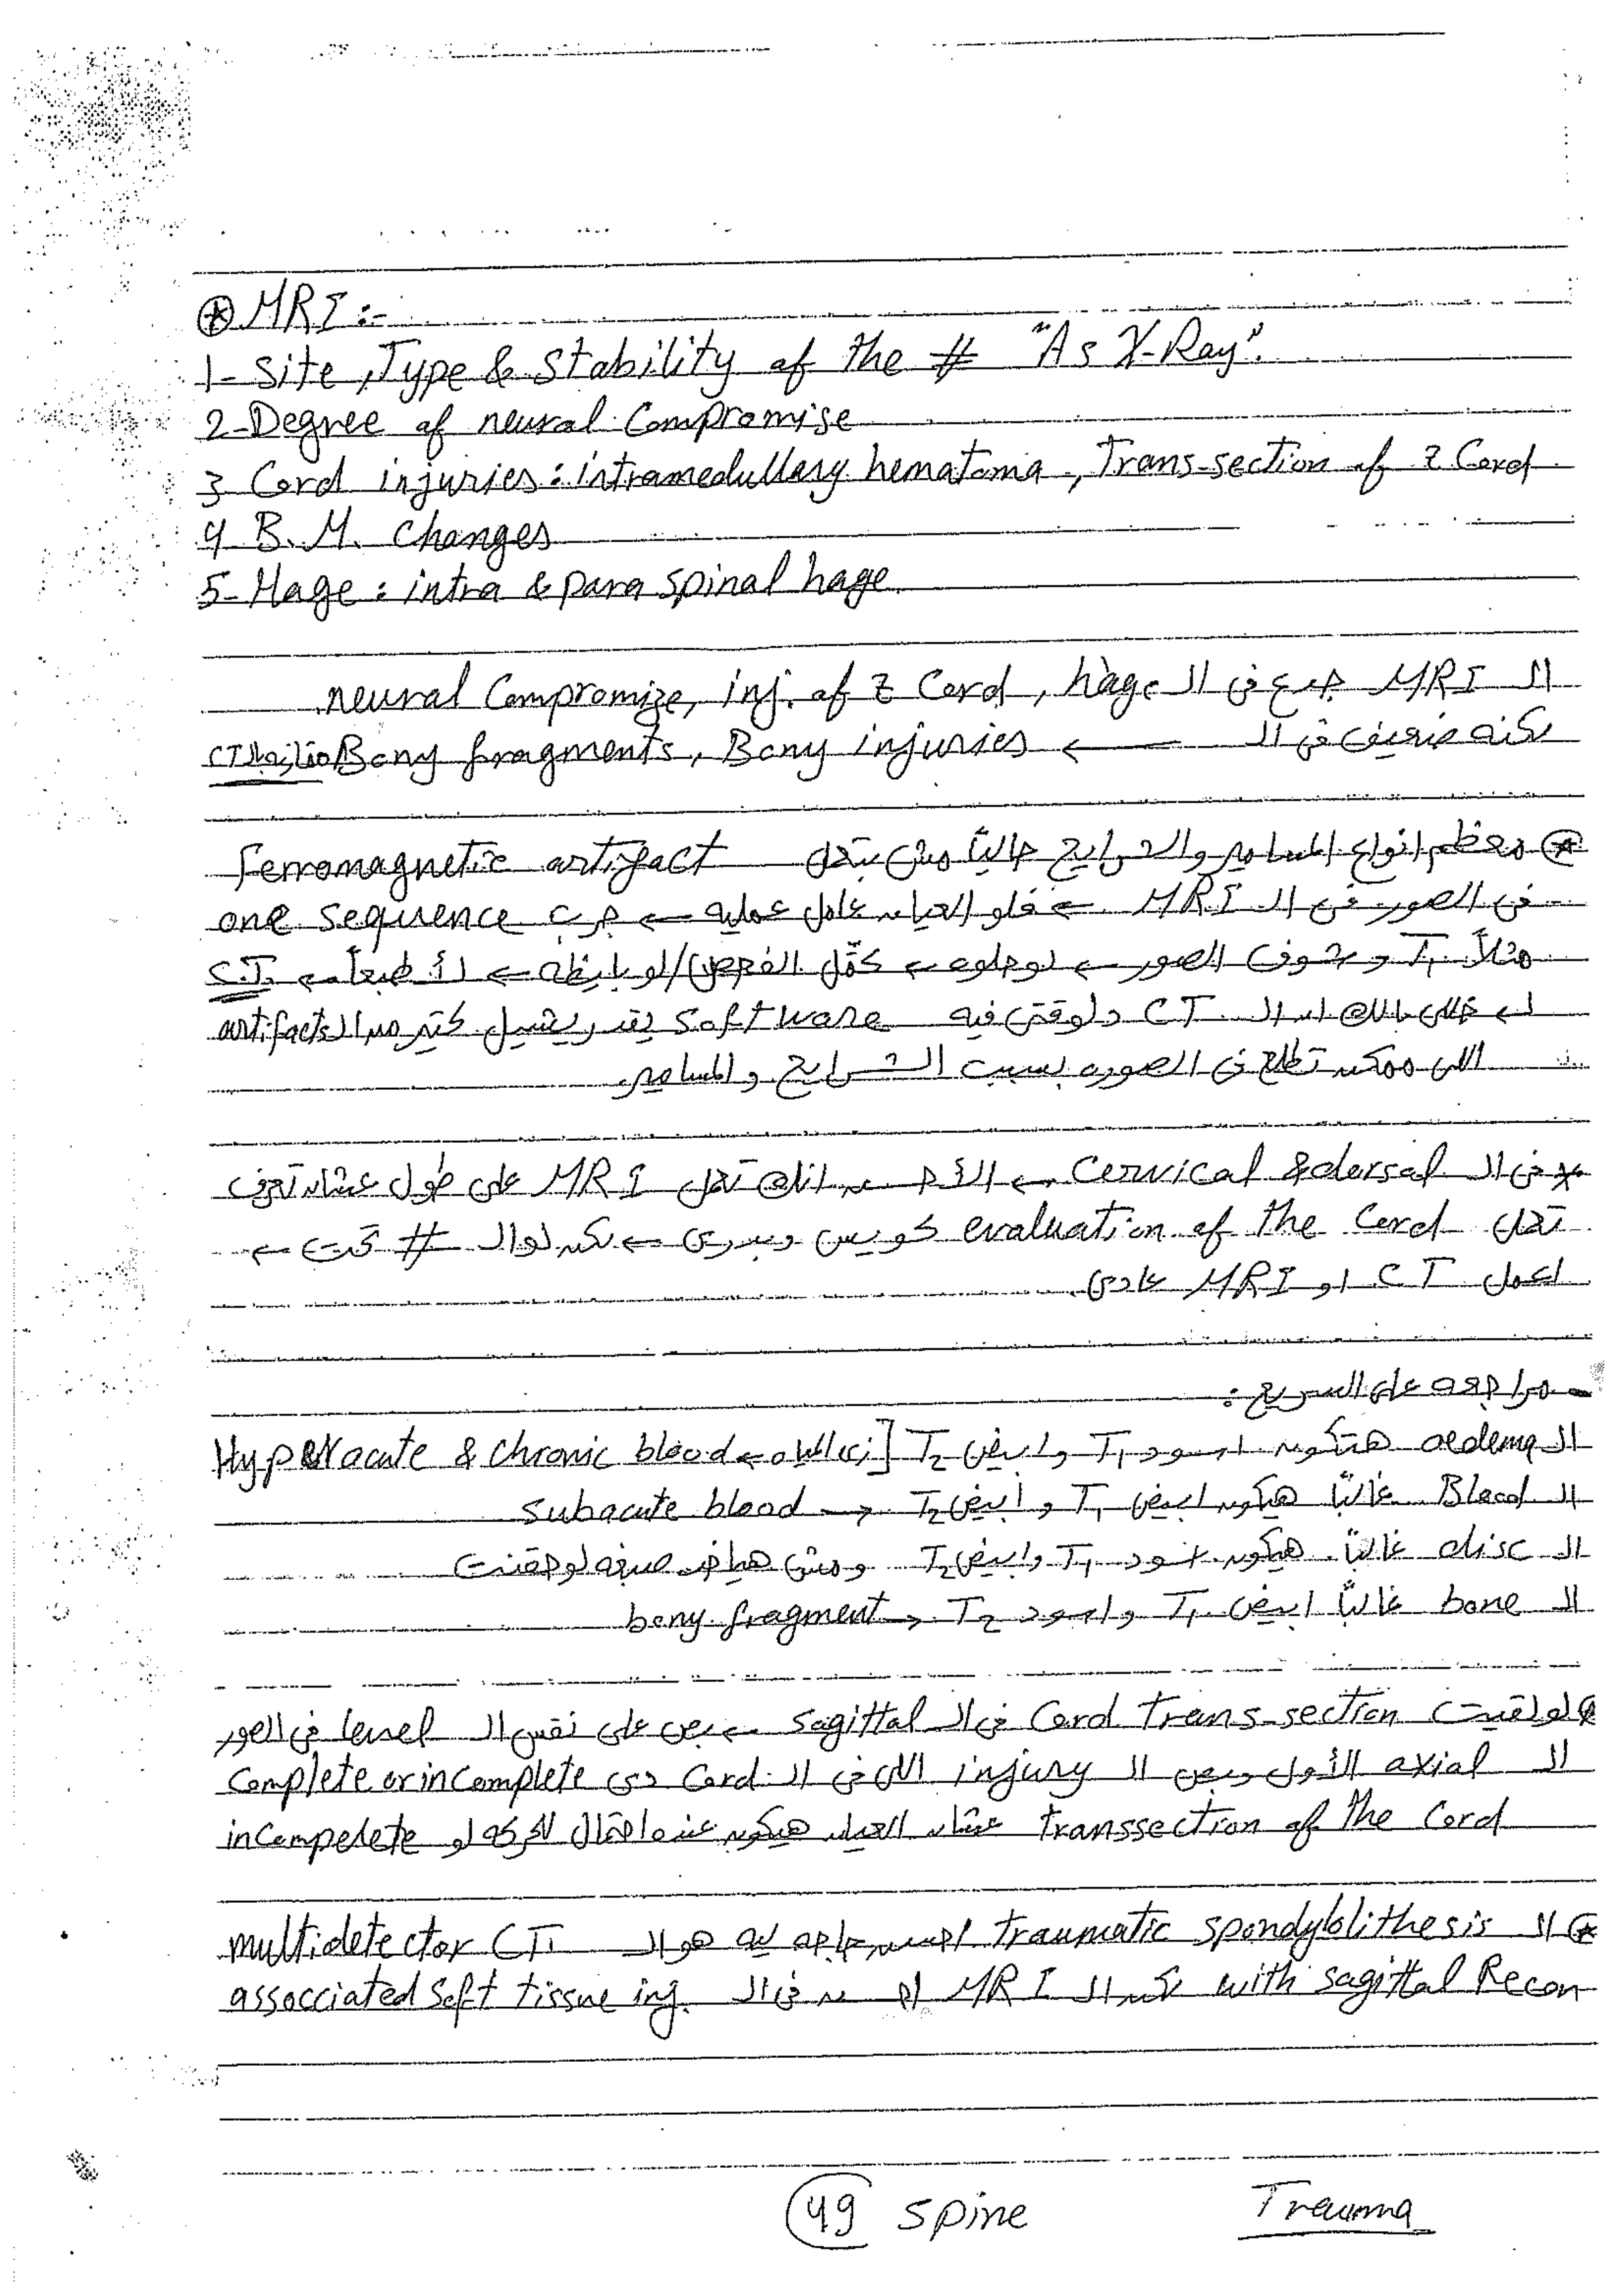 ⊛ MRI :-
1- Site, Type & Stability of the # "As X-Ray".
2- Degree of neural Compromise
3 Cord injuries : intramedullary hematoma, Trans-section of z Cord
4 B.M. changes
5- Hage : intra & para spinal hage
ال MRI جدع فى ال neural Compromize, inj. of z Cord, hage
لكنه ضعيف فى ال ← Bony fragments, Bony injuries CT
⊛ معظم انواع المسامير والشرايح حالياً مش بتعمل ferromagnetic artifact
فى الصور فى ال MRI ← فلو العيان عامل عمليه ← جرب one sequence
مثلاً T1 وشوف الصور ← لو حلوه ← كمّل الفحص / لو بايظه ← لأ طبعاً ← C.T.
خلى بالك ان ال CT دلوقتى فيه Software يقدر يشيل كتير من ال artifacts
اللى ممكن تطلع فى الصوره بسبب الشرايح والمسامير
* فى ال Cervical & dorsal ← الأحسن انك تعمل MRI على طول عشان تعرف
تعمل evaluation of the Cord كويس وبدرى ← لكن لو ال # تحت ←
اعمل CT او MRI عادى
- مراجعه على السريع :
ال oedema هتكون اسود T1 وابيض T2 [زى المياه ← Hyperacute & chronic blood
ال Blood غالباً هيكون ابيض T1 و أبيض T2 → subacute blood
ال disc غالباً هيكون اسود T1 وابيض T2 ومش هياخد صبغه لو حقنت
ال bone غالباً ابيض T1 واسود T2 → bony fragment
⊛ لو لقيت Cord trans-section فى ال sagittal ← بص على نفس ال level فى الصور
ال axial الأول وبص ال injury اللى فى ال Cord دى Complete or incomplete
transsection of the Cord عشان العيان هيكون عنده احتمال للحركه لو incompelete
⊛ ال traumatic spondylolithesis احسن حاجه ليه هو ال multidetector CT
with sagittal Recon لكن ال MRI احسن فى ال assocciated soft tissue inj.
49 Spine Trauma